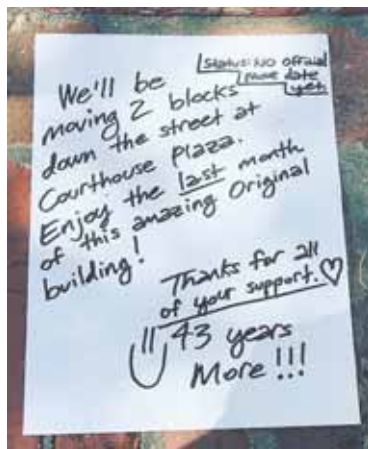 Status: No official
move date
yet.
We'll be
moving 2 blocks
down the street at
Courthouse Plaza.
Enjoy the last month
of this amazing Original
building!
Thanks for all
of your support. ♡
43 years
More!!!